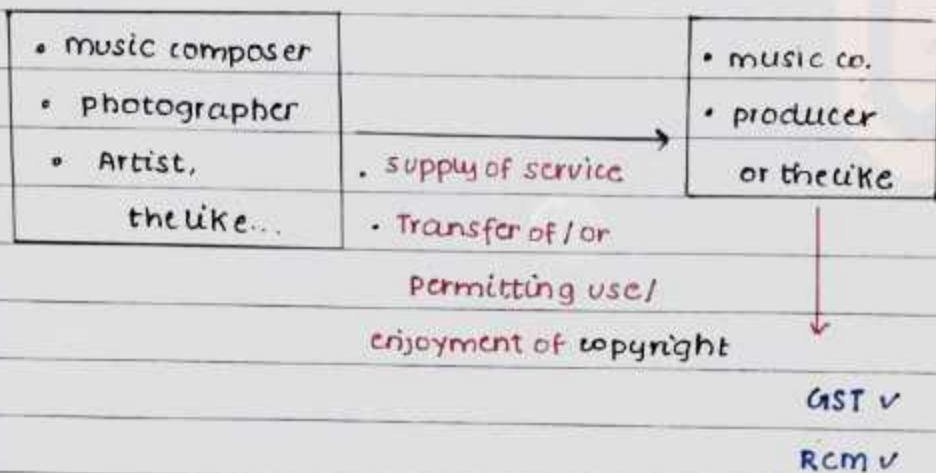 • music composer
• photographer
• Artist,
the like...
. supply of service
. Transfer of / or
permitting use/
enjoyment of copyright
• music co.
• producer
or the like
GST ✓
RCM ✓